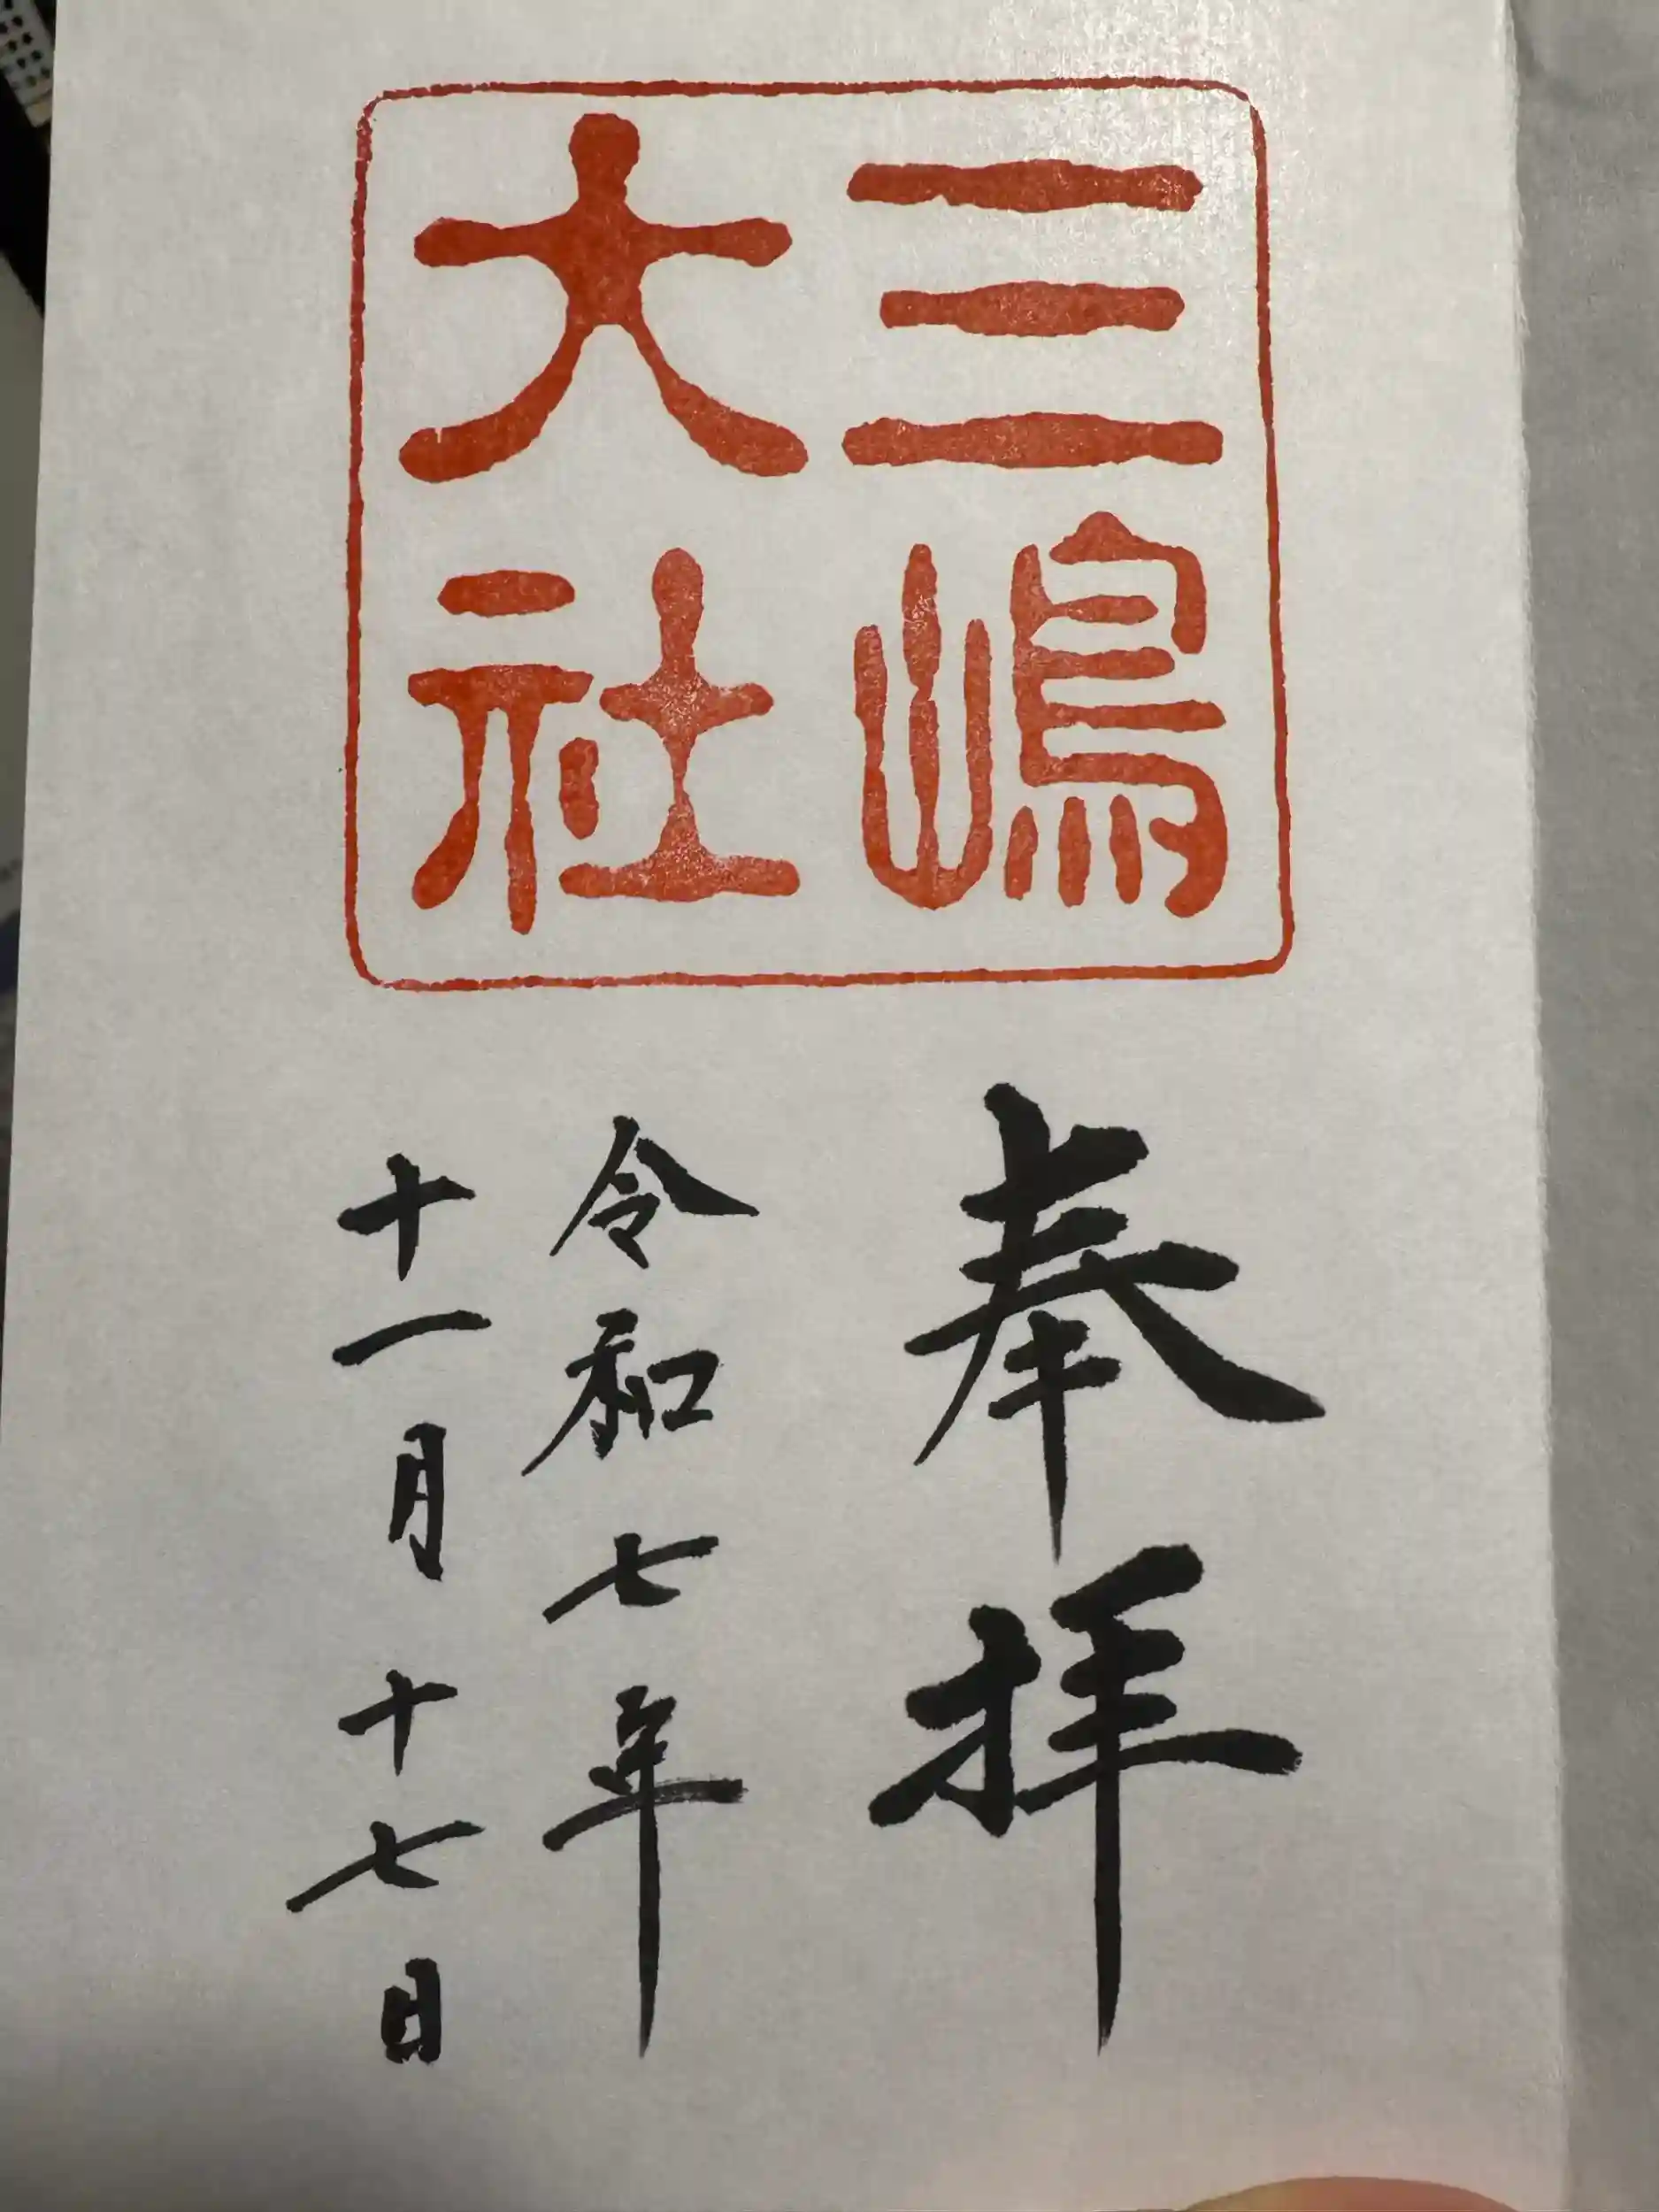 三嶋
大社
奉拝
令和七年
十一月十七日